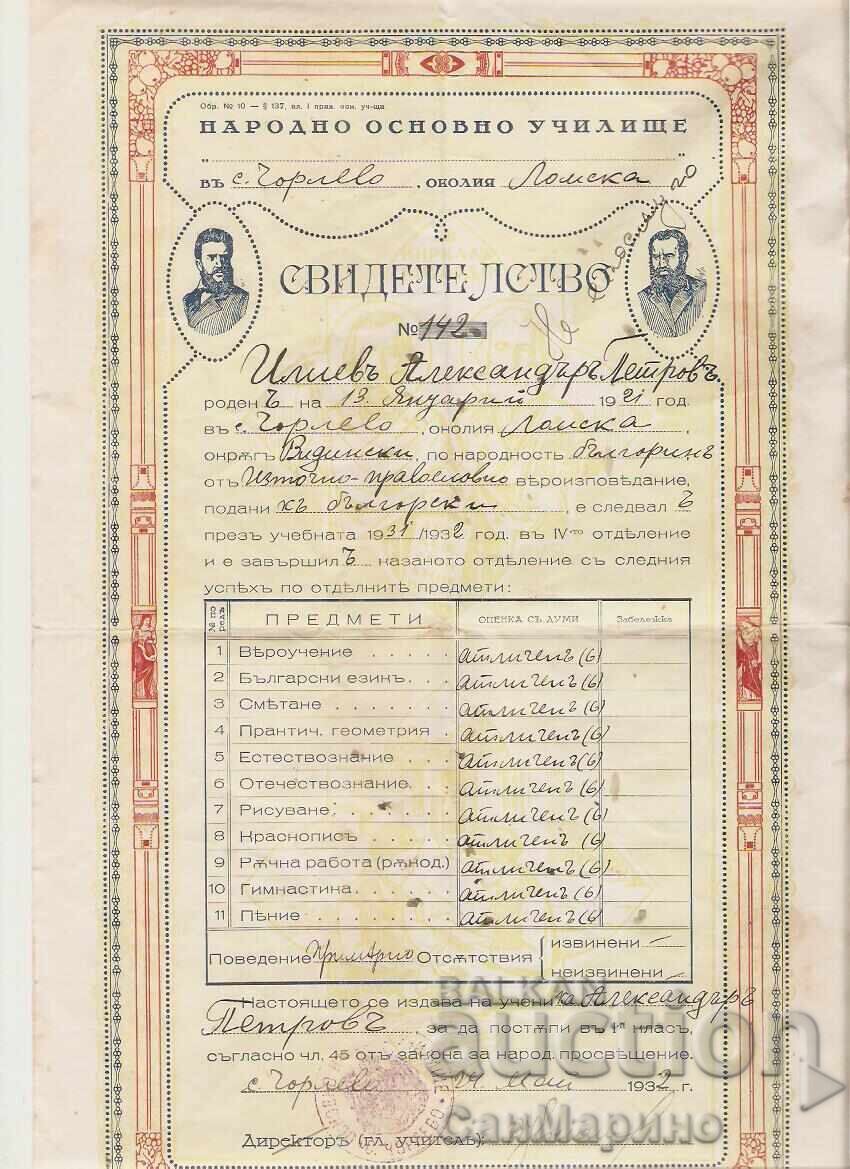 Обр. № 10 — § 137, ал. I прав. осн. уч-ща
НАРОДНО ОСНОВНО УЧИЛИЩЕ
въ с. Чорлево, околия Ломска
СВИДЕТЕЛСТВО
№ 142
Илиевъ Александъръ Петровъ
роденъ на 13 Януарий 1921 год.
въ с. Чорлево, околия Ломска,
окрѫгъ Видински, по народность българинъ
отъ Източно-православно вѣроизповѣдание,
подани къ български, е следвалъ
презъ учебната 1931/1932 год. въ IVто отдѣление
и е завършилъ казаното отдѣление съ следния
успѣхъ по отдѣлнитѣ предмети:
№ по редъ ПРЕДМЕТИ ОЦЕНКА СЪ ДУМИ Забележка
1 Вѣроучение . . . . . отличенъ (6)
2 Български езикъ. . . отличенъ (6)
3 Смѣтане . . . . . . отличенъ (6)
4 Практич. геометрия . отличенъ (6)
5 Естествознание . . . отличенъ (6)
6 Отечествознание. . . отличенъ (6)
7 Рисуване. . . . . . отличенъ (6)
8 Краснописъ . . . . . отличенъ (6)
9 Рѫчна работа (рѫкод.) отличенъ (6)
10 Гимнастика. . . . . отличенъ (6)
11 Пѣние . . . . . . . отличенъ (6)
Поведение примѣрно Отсѫтствия { извинени —
неизвинени —
Настоящето се издава на ученика Александъръ
Петровъ, за да постѫпи въ I класъ,
съгласно чл. 45 отъ закона за народ. просвѣщение.
с. Чорлево 24 Май 1932 г.
Директоръ (гл. учитель):
BALKAN
auction
СанМарино